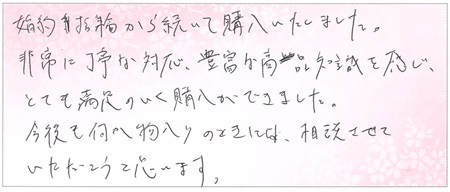 婚約指輪から続いて購入いたしました。
非常に丁寧な対応、豊富な商品知識を感じ、
とても満足のいく購入ができました。
今後も何か物入りのときには、相談させて
いただこうと思います。